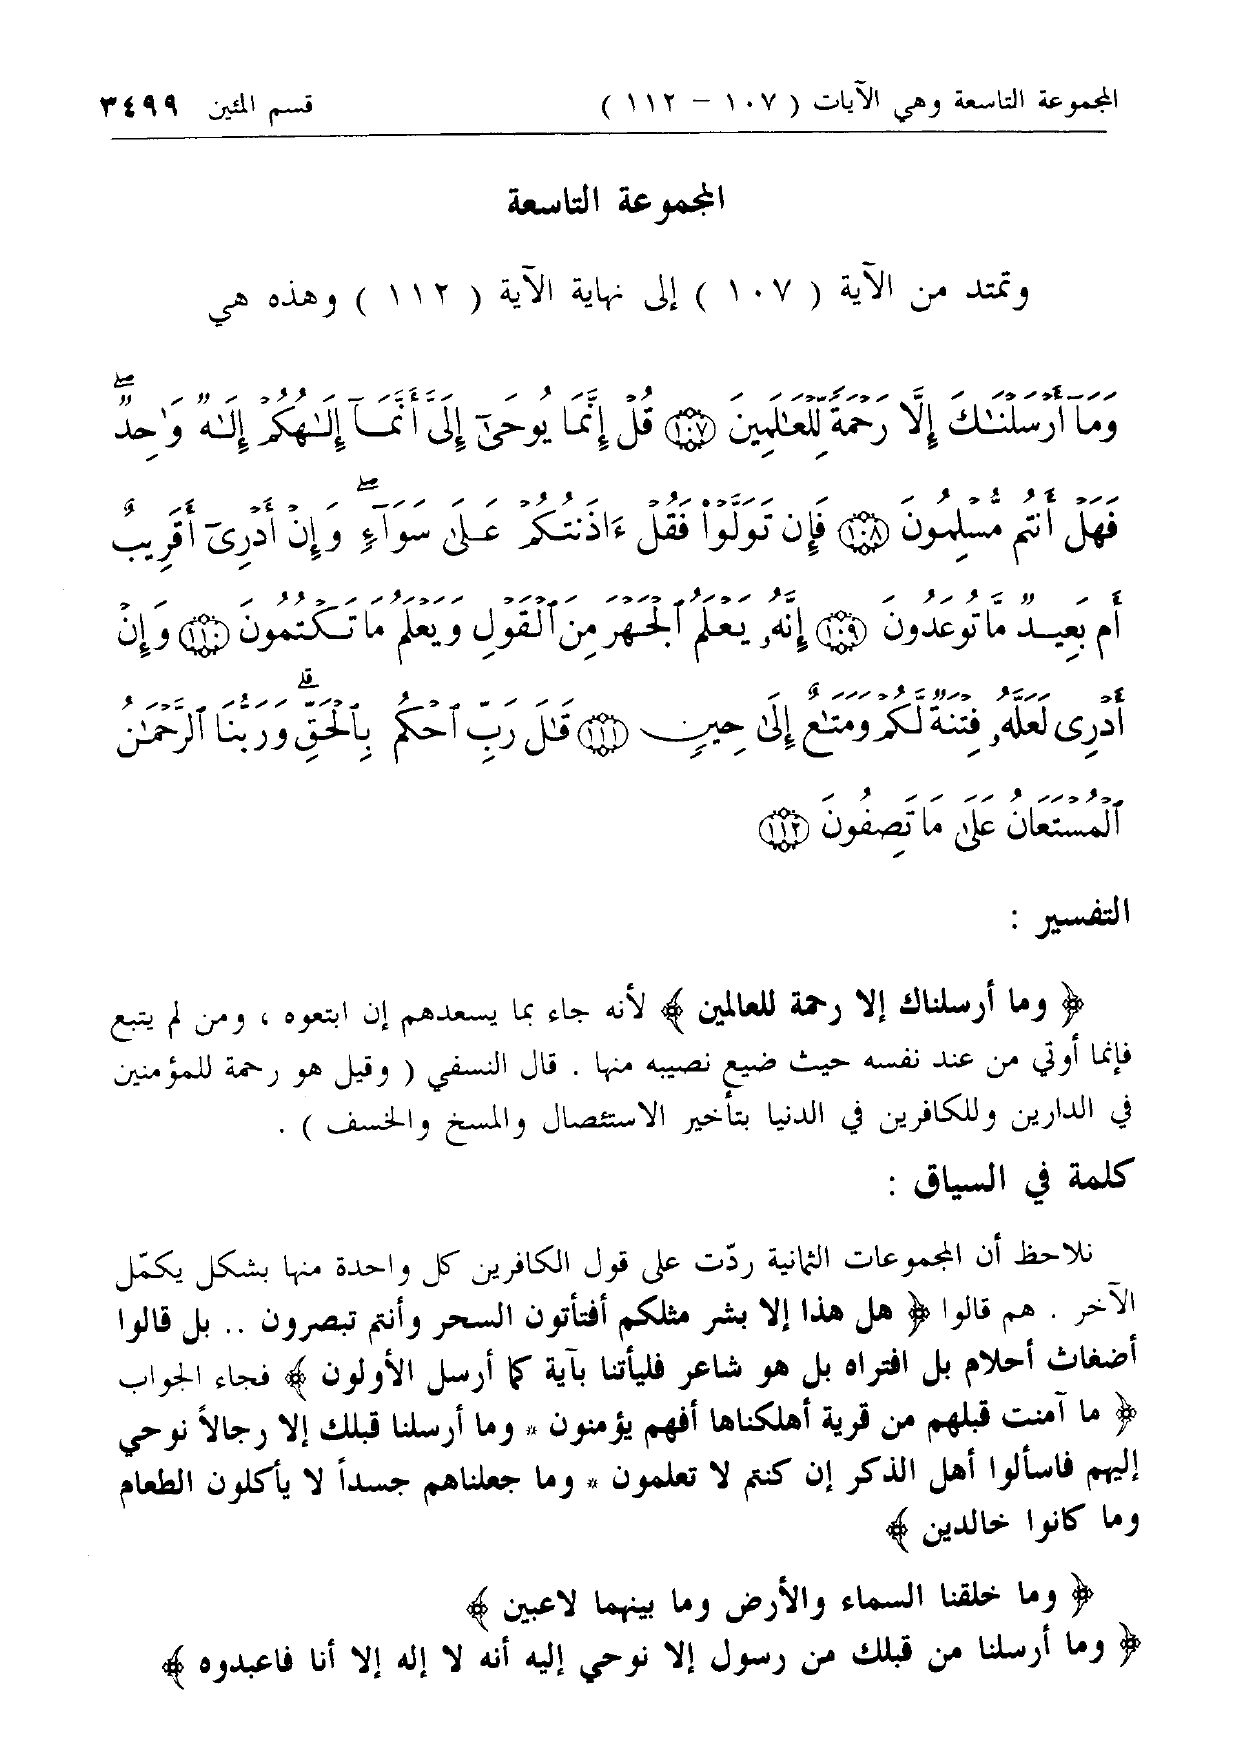 المجموعة التاسعة وهي الآيات ( ١٠٧ – ١١٢ ) قسم المئين ٣٤٩٩
المجموعة التاسعة
وتمتد من الآية ( ١٠٧ ) إلى نهاية الآية ( ١١٢ ) وهذه هي
وَمَآ أَرْسَلْنَٰكَ إِلَّا رَحْمَةً لِّلْعَٰلَمِينَ ١٠٧ قُلْ إِنَّمَا يُوحَىٰٓ إِلَىَّ أَنَّمَآ إِلَٰهُكُمْ إِلَٰهٌ وَٰحِدٌ ۖ
فَهَلْ أَنتُم مُّسْلِمُونَ ١٠٨ فَإِن تَوَلَّوْا۟ فَقُلْ ءَاذَنتُكُمْ عَلَىٰ سَوَآءٍ ۖ وَإِنْ أَدْرِىٓ أَقَرِيبٌ
أَم بَعِيدٌ مَّا تُوعَدُونَ ١٠٩ إِنَّهُۥ يَعْلَمُ ٱلْجَهْرَ مِنَ ٱلْقَوْلِ وَيَعْلَمُ مَا تَكْتُمُونَ ١١٠ وَإِنْ
أَدْرِى لَعَلَّهُۥ فِتْنَةٌ لَّكُمْ وَمَتَٰعٌ إِلَىٰ حِينٍ ١١١ قَٰلَ رَبِّ ٱحْكُم بِٱلْحَقِّ ۗ وَرَبُّنَا ٱلرَّحْمَٰنُ
ٱلْمُسْتَعَانُ عَلَىٰ مَا تَصِفُونَ ١١٢
التفسير :
﴿ وما أرسلناك إلا رحمة للعالمين ﴾ لأنه جاء بما يسعدهم إن ابتعوه ، ومن لم يتبع
فإنما أوتي من عند نفسه حيث ضيع نصيبه منها . قال النسفي ( وقيل هو رحمة للمؤمنين
في الدارين وللكافرين في الدنيا بتأخير الاستئصال والمسخ والخسف ) .
كلمة في السياق :
نلاحظ أن المجموعات الثمانية ردّت على قول الكافرين كل واحدة منها بشكل يكمّل
الآخر . هم قالوا ﴿ هل هذا إلا بشر مثلكم أفتأتون السحر وأنتم تبصرون .. بل قالوا
أضغاث أحلام بل افتراه بل هو شاعر فليأتنا بآية كما أرسل الأولون ﴾ فجاء الجواب
﴿ ما آمنت قبلهم من قرية أهلكناها أفهم يؤمنون * وما أرسلنا قبلك إلا رجالاً نوحي
إليهم فاسألوا أهل الذكر إن كنتم لا تعلمون * وما جعلناهم جسداً لا يأكلون الطعام
وما كانوا خالدين ﴾
﴿ وما خلقنا السماء والأرض وما بينهما لاعبين ﴾
﴿ وما أرسلنا من قبلك من رسول إلا نوحي إليه أنه لا إله إلا أنا فاعبدوه ﴾